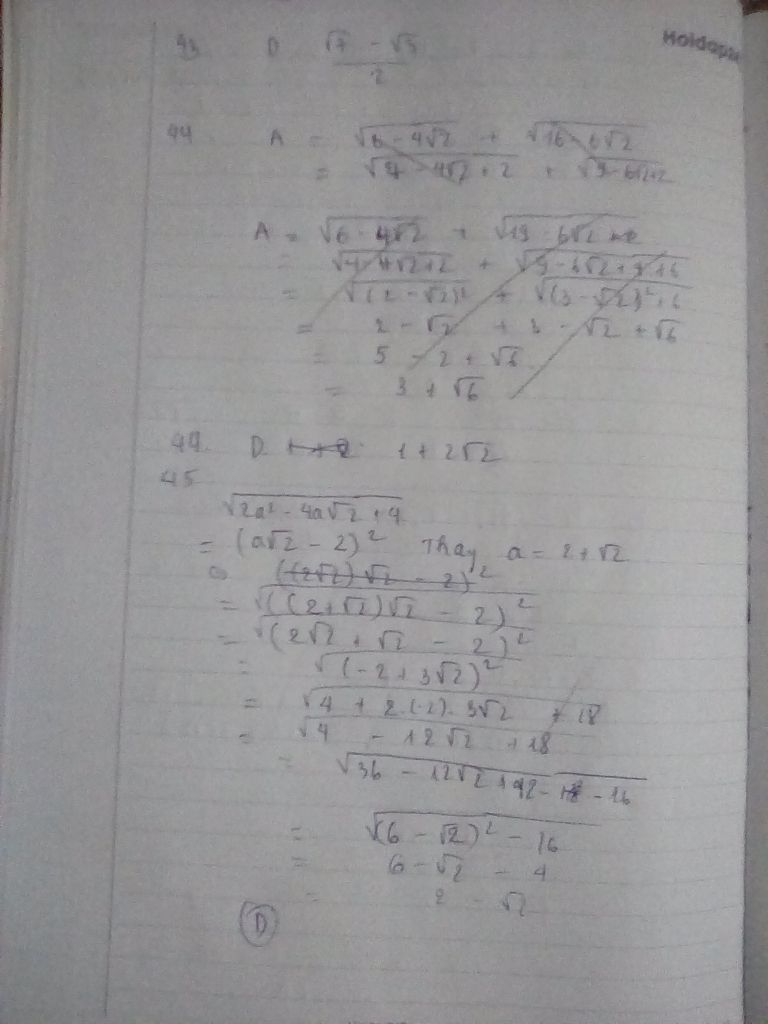 Holdop
43 D √7 - √3 / 2
44 A = √6 - 4√2 + √16 - 6√2
= √4 - 4√2 + 2 + √9 - 6√2 + 2
A = √6 - 4√2 + √19 - 6√2
= √4 - 4√2 + 2 + √9 - 6√2 + 4 + 6
= √(2 - √2)² + √(3 - √2)² + 6
= 2 - √2 + 3 - √2 + √6
= 5 - 2 + √6
= 3 + √6
44. D. 1 + 2√2
45
√2a² - 4a√2 + 4
= (a√2 - 2)² Thay a = 2 + √2
((2√2)√2 - 2)²
= √((2+√2)√2 - 2)²
= √(2√2 + √2 - 2)²
= √(-2 + 3√2)²
= √4 + 2.(-2).3√2 + 18
= √4 - 12√2 + 18
= √36 - 12√2 + 2 - 16
= √(6 - √2)² - 16
= 6 - √2 - 4
= 2 - √2
D